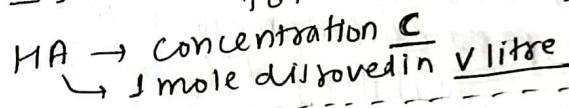 HA → concentration C
↳ 1 mole dissoved in V litre